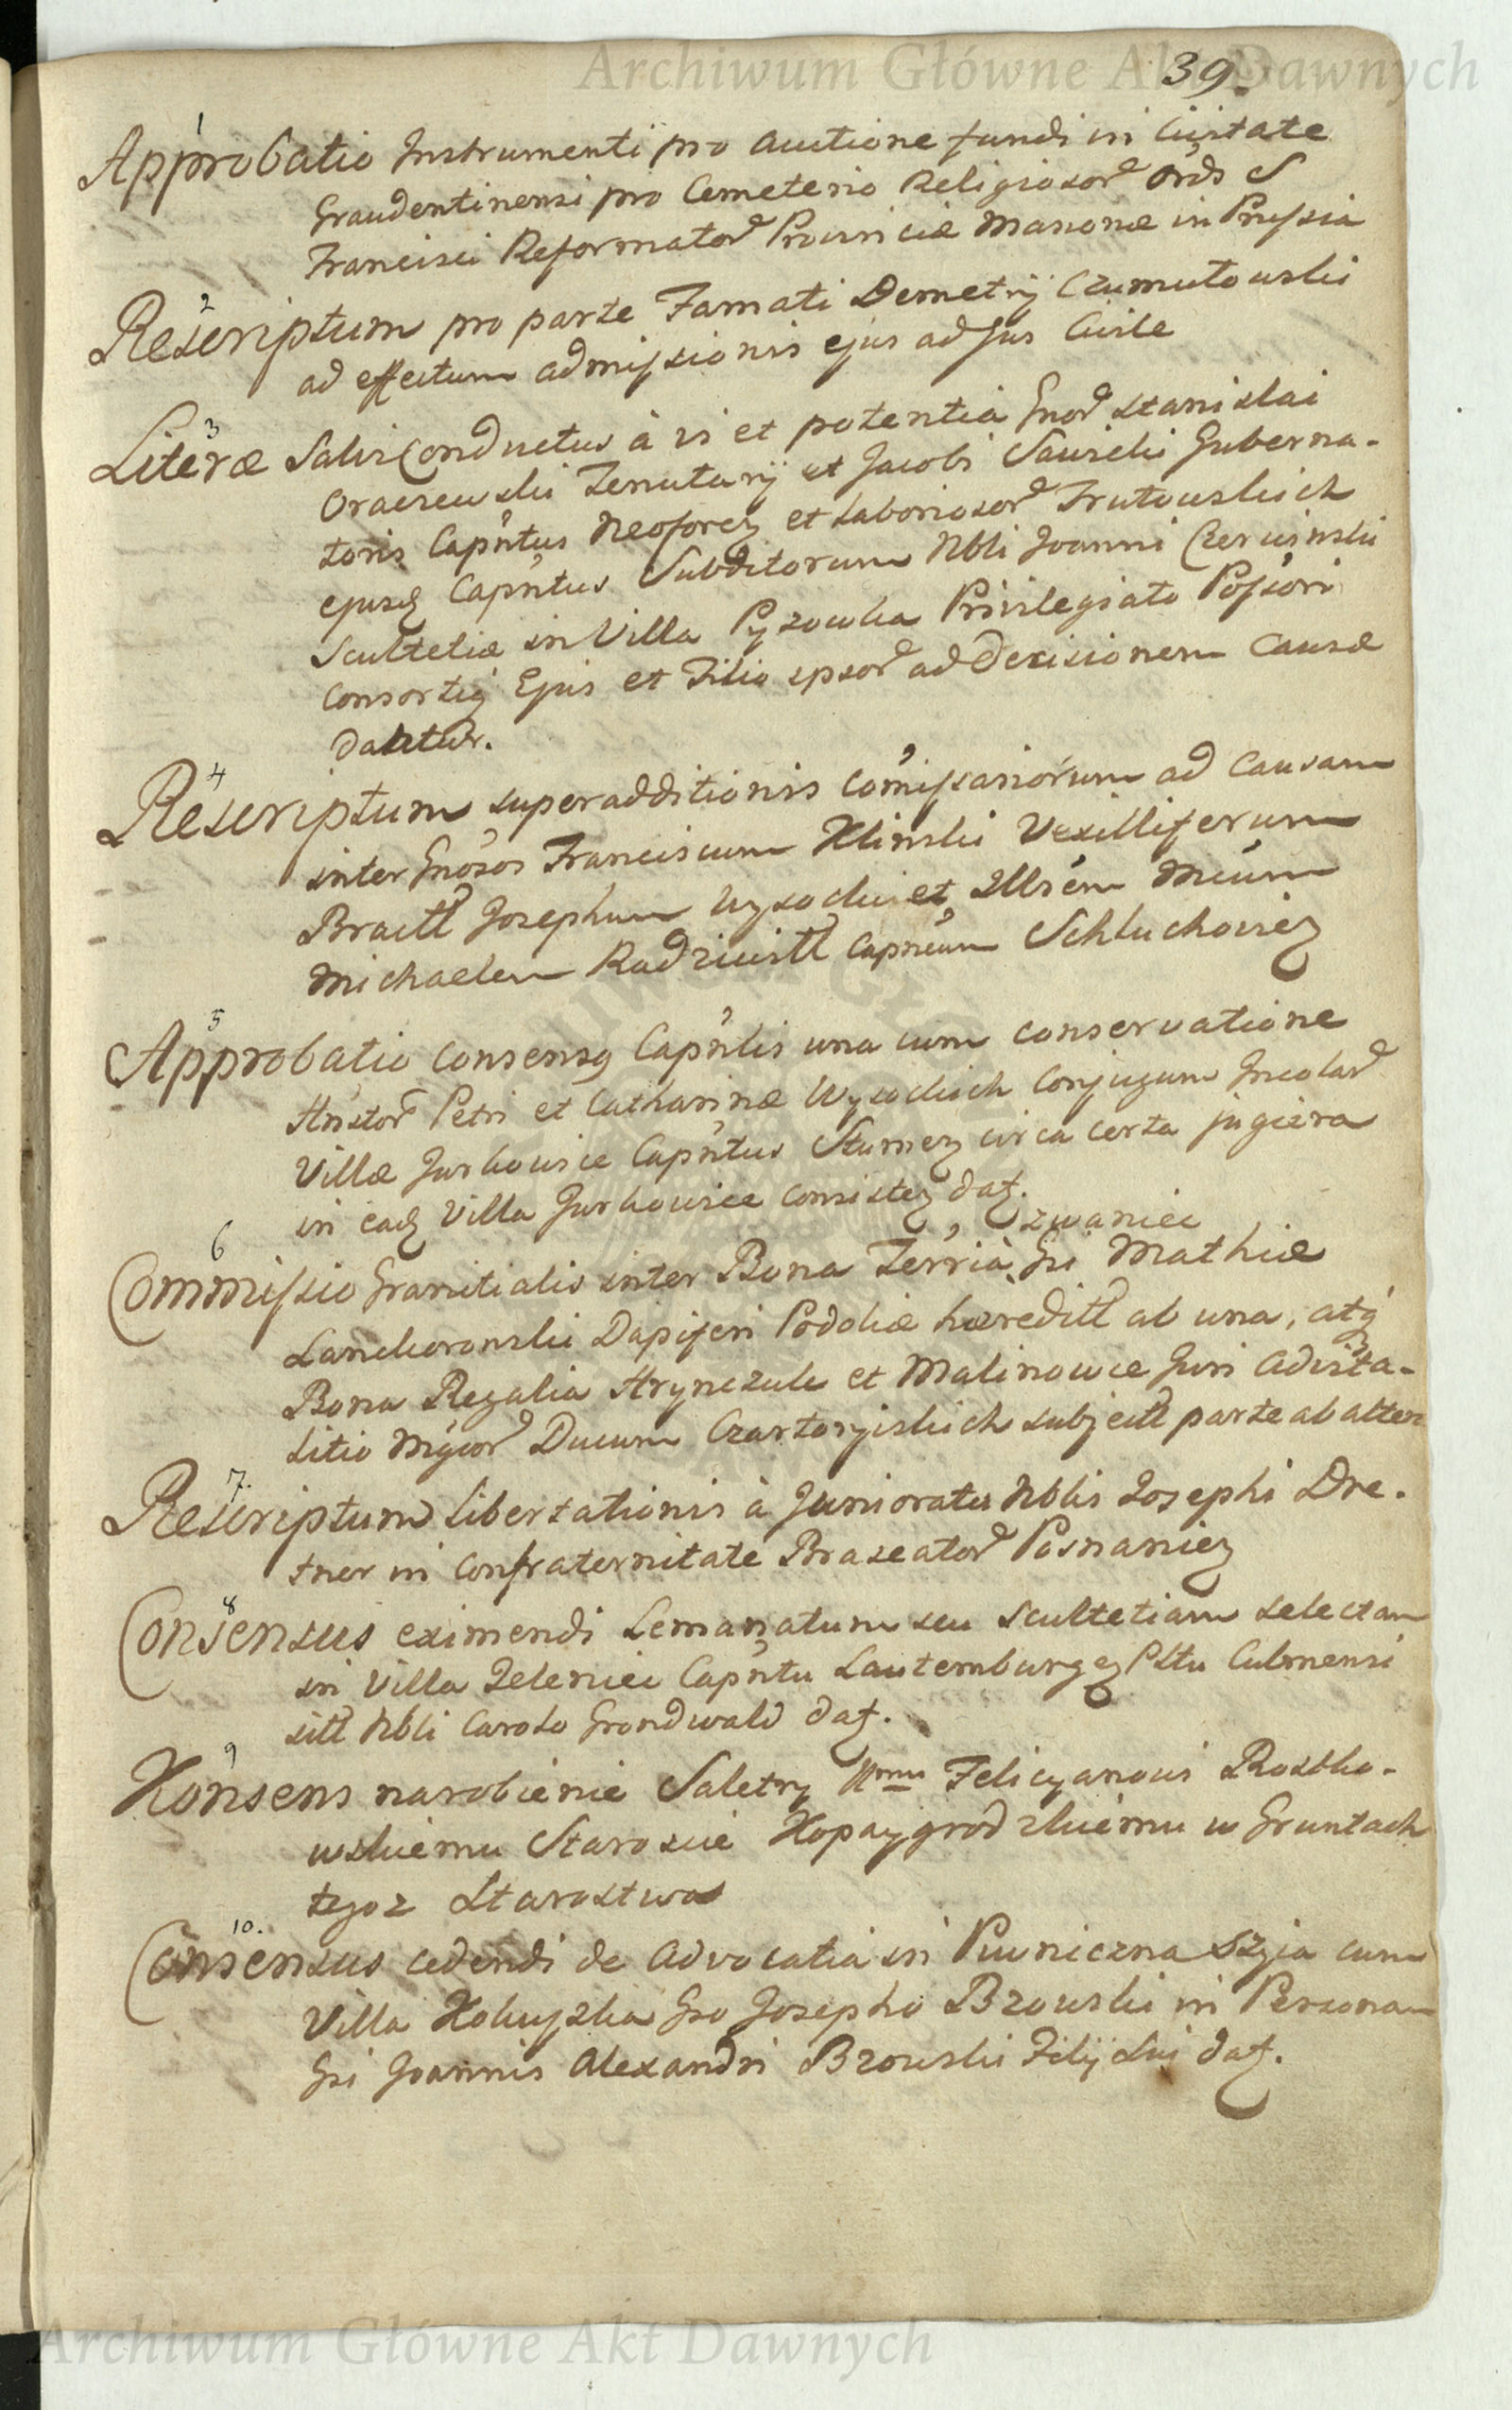 Archiwum Główne Akt Dawnych
39.
1
Approbatio Instrumenti pro auctione fundi in Civitate
Graudentinensi pro Cemeterio Religiosor Ords S
Francisci Reformator Provinciæ Marianæ in Prussia
2
Rescriptum pro parte Famati Demetrij Czumutowski
ad effectum admissionis ejus ad Jus Civile
3
Literæ Salvi Conductus à vi et potentia Gnor Stanislai
Oraczewski Tenutarij et Jacobi Saviski Guberna-
toris Capntus Neoforeg et Laboriosor Trutowskich
ejusq Capntus Subditorum Nbli Joanni Czerwinski
Scultetiæ in Villa Pyzowka Privilegiato Possori
Consortiq Ejus et Filio ipsor ad Decisionem Causæ
Dantur.
4
Rescriptum superadditionis Comissariorum ad Causam
inter Gnosos Franciscum Klinski Vexilliferum
Bractt Josephum Wysocki et Illsem Mcum
Michaelem Radziwitt Capneum Schluchovieg
5
Approbatio Consensq Capnlis una cum conservatione
Hnstor Petri et Catharinæ Wysockich Conjugum Incolar
Villæ Jurkowice Capntus Stumeg circa certa jugiera
in eadq Villa Jurkowice Consisteg datg.
6
zwaniec
Commissio Granitialis inter Bona Terria Gsi Mathiæ
Lanckoronski Dapiferi Podoliæ hæreditt ab una, atq
Bona Regalia Hrynczuk et Malinowce Juri Advita-
litio Mgcor Ducum Czartoryiskich subjectt parte ab altera
7.
Rescriptum libertationis à Junioratu Nblis Josephi Dre-
tner in Confraternitate Braseator Posnanieg
8
Consensus eximendi Lemanatum seu Scultetiam selectam
in Villa Zeleniec Capntu Lautemburgeg Pltu Culmensi
sitt Nbli Carolo Grondwald datg.
9
Konsens narobienie Saletry Urmu Felicyanowi Rostko-
wskiemu Staroscie Kopaygrodzkiemu w Gruntach
tegoz Starostwa
10.
Consensus cedendi de Advocatia in Piwniczna Szyia cum
Villa Kokuszka Gso Josepho Bzowski in Personam
Gsi Joannis Alexandri Bzowski Filij sui datg.
Archiwum Główne Akt Dawnych